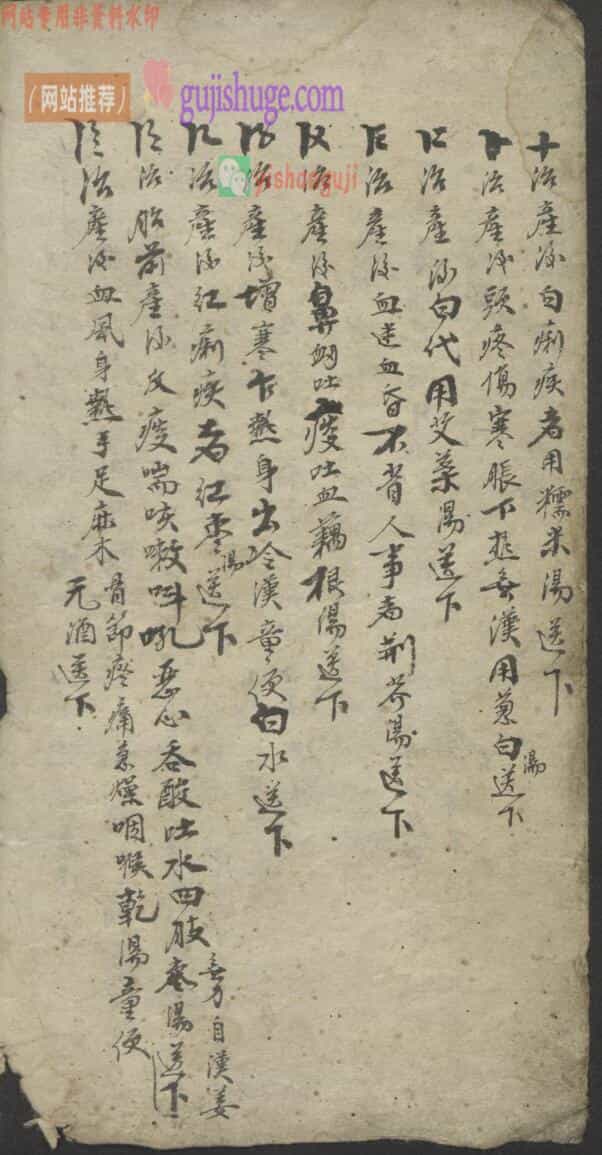 网站专用非资料水印
(网站推荐)
gujishuge.com
jishanguji
十治産後白痢疾者用糯米湯送下
治産後頭疼傷寒脹下無漢用葱白湯送下
治産後白代用艾葉湯送下
治産後血迷血昏不省人事者荆芥湯送下
治産後鼻衄吐痰吐血藕根湯送下
治産後增寒乍熱身出冷漢童便白水送下
治産後紅痢疾者紅枣湯送下
治胎前産後反痰喘咳嗽吼惡心吞酸吐水四肢無力自漢姜湯送下
治産後血風身熱手足麻木骨節疼痛煩燥咽喉乾湯童便元酒送下